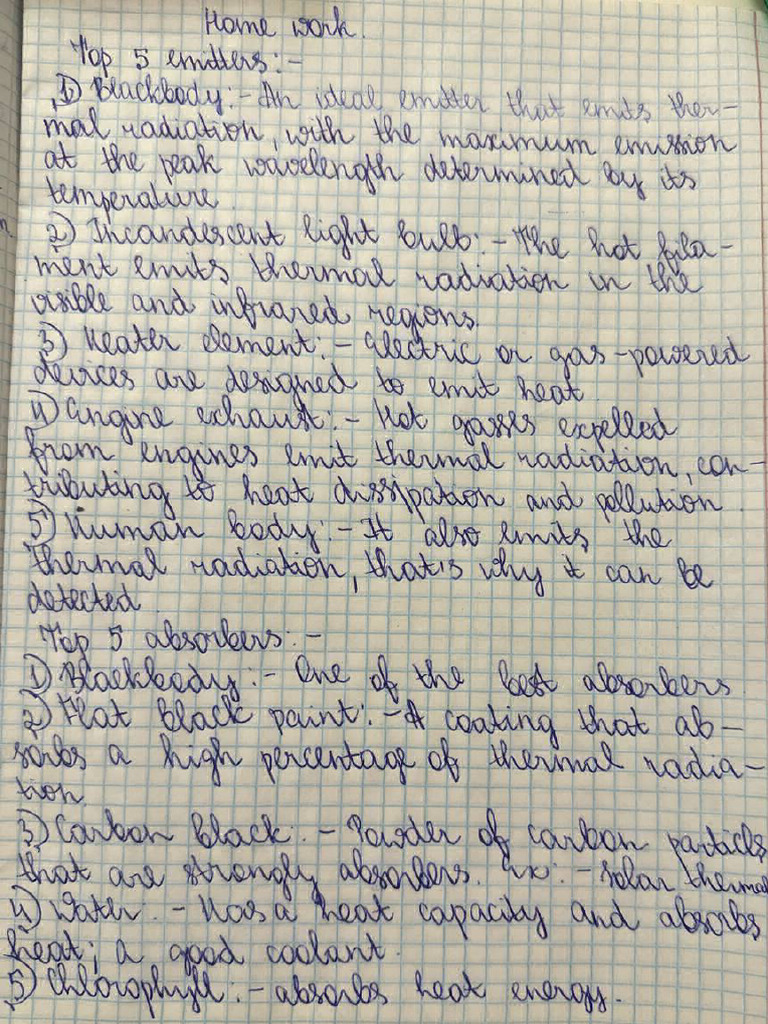 Home work.
Top 5 emitters:-
1) Blackbody:- An ideal emitter that emits ther-
mal radiation, with the maximum emission
at the peak wavelength determined by its
temperature.
2) Incandescent light bulb:- The hot fila-
ment emits thermal radiation in the
visible and infrared regions.
3) Heater element:- Electric or gas-powered
devices are designed to emit heat.
4) Engine exhaust:- Hot gasses expelled
from engines emit thermal radiation, con-
tributing to heat dissipation and pollution.
5) Human body:- It also emits the
thermal radiation, that's why it can be
detected.
Top 5 absorbers:-
1) Blackbody:- One of the best absorbers
2) Flat black paint:- A coating that ab-
sorbs a high percentage of thermal radia-
tion.
3) Carbon black:- Powder of carbon particles
that are strongly absorbers. Ex:- Solar thermal
4) Water:- Has a heat capacity and absorbs
heat; a good coolant.
5) Chlorophyll:- absorbs heat energy.